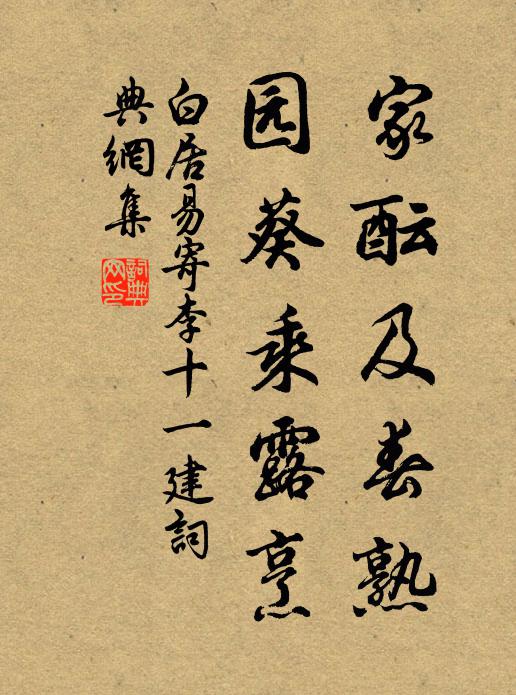 家酝及春熟
园葵乘露烹
白居易寄李十一建詞
典網集
詞典
网印